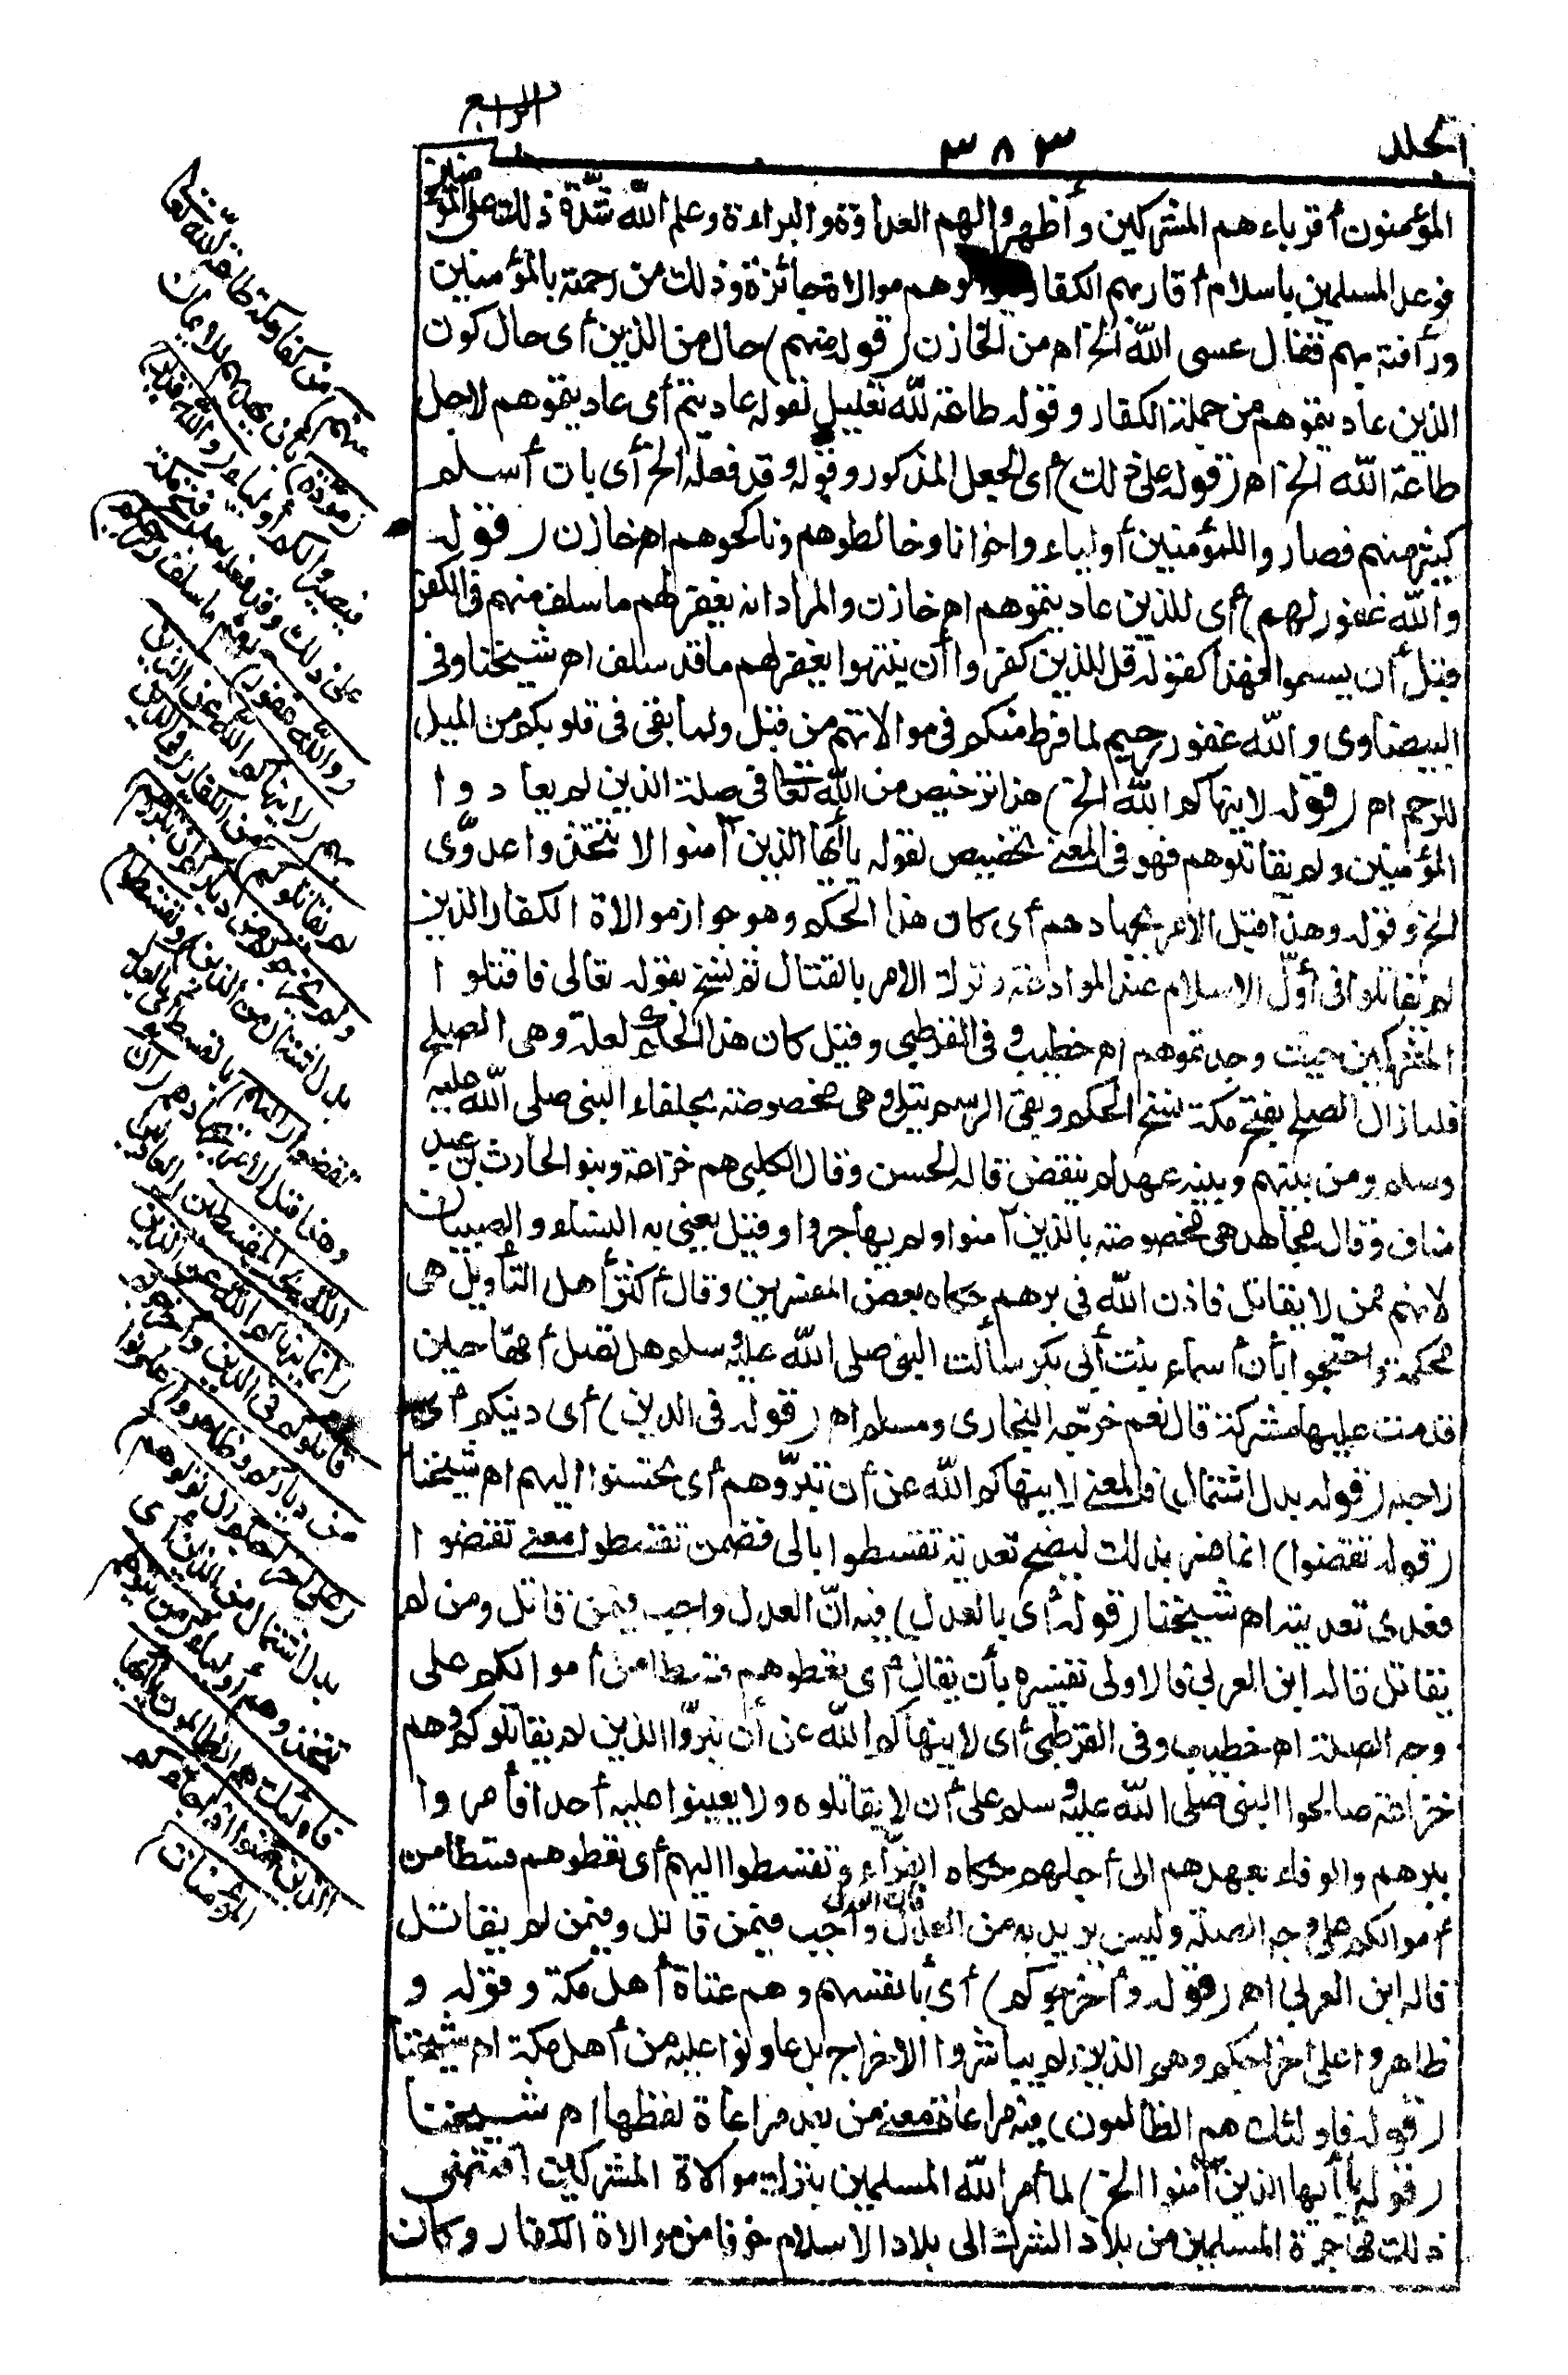 المجلد
٣٨٣
الرابع
المؤمنون أقرباءهم المشركين وأظهروا لهم العداوة والبراءة وعلم الله شدة ذلك على المؤمنين
فوعد المسلمين باسلام أقاربهم الكفار فيوالوهم موالاة جائزة وذلك من رحمته بالمؤمنين
ورأفته بهم فقال عسى الله الخ اه من الخازن (قوله منهم) حال من الذين أى حال كون
الذين عاديتموهم من جملة الكفار وقوله طاعة لله تعليل لقوله عاديتم أى عاديتموهم لاجل
طاعة الله الخ اه (قوله على ذلك) أى الجعل المذكور وقوله وقد فعله الخ أى بان أسلم
كثير منهم فصاروا للمؤمنين أولياء واخوانا وخالطوهم وناكحوهم اه خازن (قوله
والله غفور لهم) أى للذين عاديتموهم اه خازن والمراد انه يغفر لهم ما سلف منهم فى الكفر
قبل أن يسلموا فهذا كقوله قل للذين كفروا أن ينتهوا يغفر لهم ما قد سلف اه شيخنا وفى
البيضاوى والله غفور رحيم لما فرط منكم فى موالاتهم من قبل ولما بقى فى قلوبكم من الميل
للرحم اه (قوله لا ينهاكم الله الخ) هذا ترخيص من الله تعالى فى صلة الذين لم يعادوا
المؤمنين ولم يقاتلوهم فهو فى المعنى تخصيص لقوله ياأيها الذين آمنوا لا تتخذوا عدوّى
الخ وقوله وهذا قبل الامر بجهادهم أى كان هذا الحكم وهو جواز موالاة الكفار الذين
لم يقاتلوا فى أوّل الاسلام عند الموادعة وترك الامر بالقتال ثم نسخ بقوله تعالى فاقتلوا
المشركين حيث وجدتموهم اه خطيب وفى القرطبى وقيل كان هذا الحكم لعلة وهى الصلح
فلما زال الصلح بفتح مكة نسخ الحكم وبقى الرسم يتلى وهى مخصوصة بحلفاء النبى صلى الله عليه
وسلم ومن بينهم وبينه عهد لم ينقض قاله الحسن وقال الكلبى هم خزاعة وبنو الحارث بن عبد
مناف وقال مجاهد هى مخصوصة بالذين آمنوا ولم يهاجروا وقيل يعنى به النساء والصبيان
لانهم ممن لا يقاتل فاذن الله فى برهم حكاه بعض المفسرين وقال أكثر أهل التأويل هى
محكمة واحتجوا بأن أسماء بنت أبى بكر سألت النبى صلى الله عليه وسلم هل تصل أمّها حين
قدمت عليها مشركة قال نعم خرّجه البخارى ومسلم اه (قوله فى الدين) أى دينكم أى
لاجله (قوله بدل اشتمال) فالمعنى لا ينهاكم الله عن أن تبرّوهم أى تحسنوا اليهم اه شيخنا
(قوله تقضوا) انما فسر بذلك ليصح تعدية تقسطوا بالى فضمن تقسطوا معنى تقضوا
فعدى تعديته اه شيخنا (قوله أى بالعدل) فيه انّ العدل واجب فيمن قاتل ومن لم
يقاتل قاله ابن العربى فالاولى تفسيره بأن يقال أى تعطوهم قسطا من أموالكم على
وجه الصلة اه خطيب وفى القرطبى أى لا ينهاكم الله عن أن تبرّوا الذين لم يقاتلوكم وهم
خزاعة صالحوا النبى صلى الله عليه وسلم على أن لا يقاتلوه ولا يعينوا عليه أحدا فأمروا
ببرهم والوفاء بعهدهم الى أجلهم حكاه الفرّاء وتقسطوا اليهم أى تعطوهم قسطا من
أموالكم على وجه الصلة وليس يريد به من العدل فان العدل واجب فيمن قاتل وفيمن لم يقاتل
قاله ابن العربى اه (قوله وأخرجوكم) أى بأنفسهم وهم عتاة أهل مكة وقوله و
ظاهروا على اخراجكم وهم الذين لم يباشروا الاخراج بل عاونوا عليه من أهل مكة اه شيخنا
(قوله فاولئك هم الظالمون) فيه مراعاة معنى من بعد مراعاة لفظها اه شيخنا
(قوله ياأيها الذين آمنوا الخ) لما أمر الله المسلمين بترك موالاة المشركين اقتضى
ذلك مهاجرة المسلمين من بلاد الشرك الى بلاد الاسلام خوفا من موالاة الكفار وكان
منهم) من كفار مكة طاعة لله تعالى
(مودّة) بأن يهديهم للايمان
فيصيروا لكم أولياء (والله قدير)
على ذلك وقد فعله بعد فتح مكة
(والله غفور) لهم ما سلف (رحيم)
بهم (لا ينهاكم الله عن الذين
لم يقاتلوكم) من الكفار (فى الدين
ولم يخرجوكم من دياركم أن تبرّوهم)
بدل اشتمال من الذين (وتقسطوا)
تقضوا (اليهم) بالقسط أى بالعدل
وهذا قبل الامر بجهادهم (ان
الله يحب المقسطين) العادلين
(انما ينهاكم الله عن الذين
قاتلوكم فى الدين وأخرجوكم
من دياركم وظاهروا) عاونوا
(على اخراجكم أن تولوهم)
بدل اشتمال من الذين أى
تتخذوهم أولياء (ومن يتولهم
فأولئك هم الظالمون ياأيها
الذين آمنوا اذا جاءكم
المؤمنات)